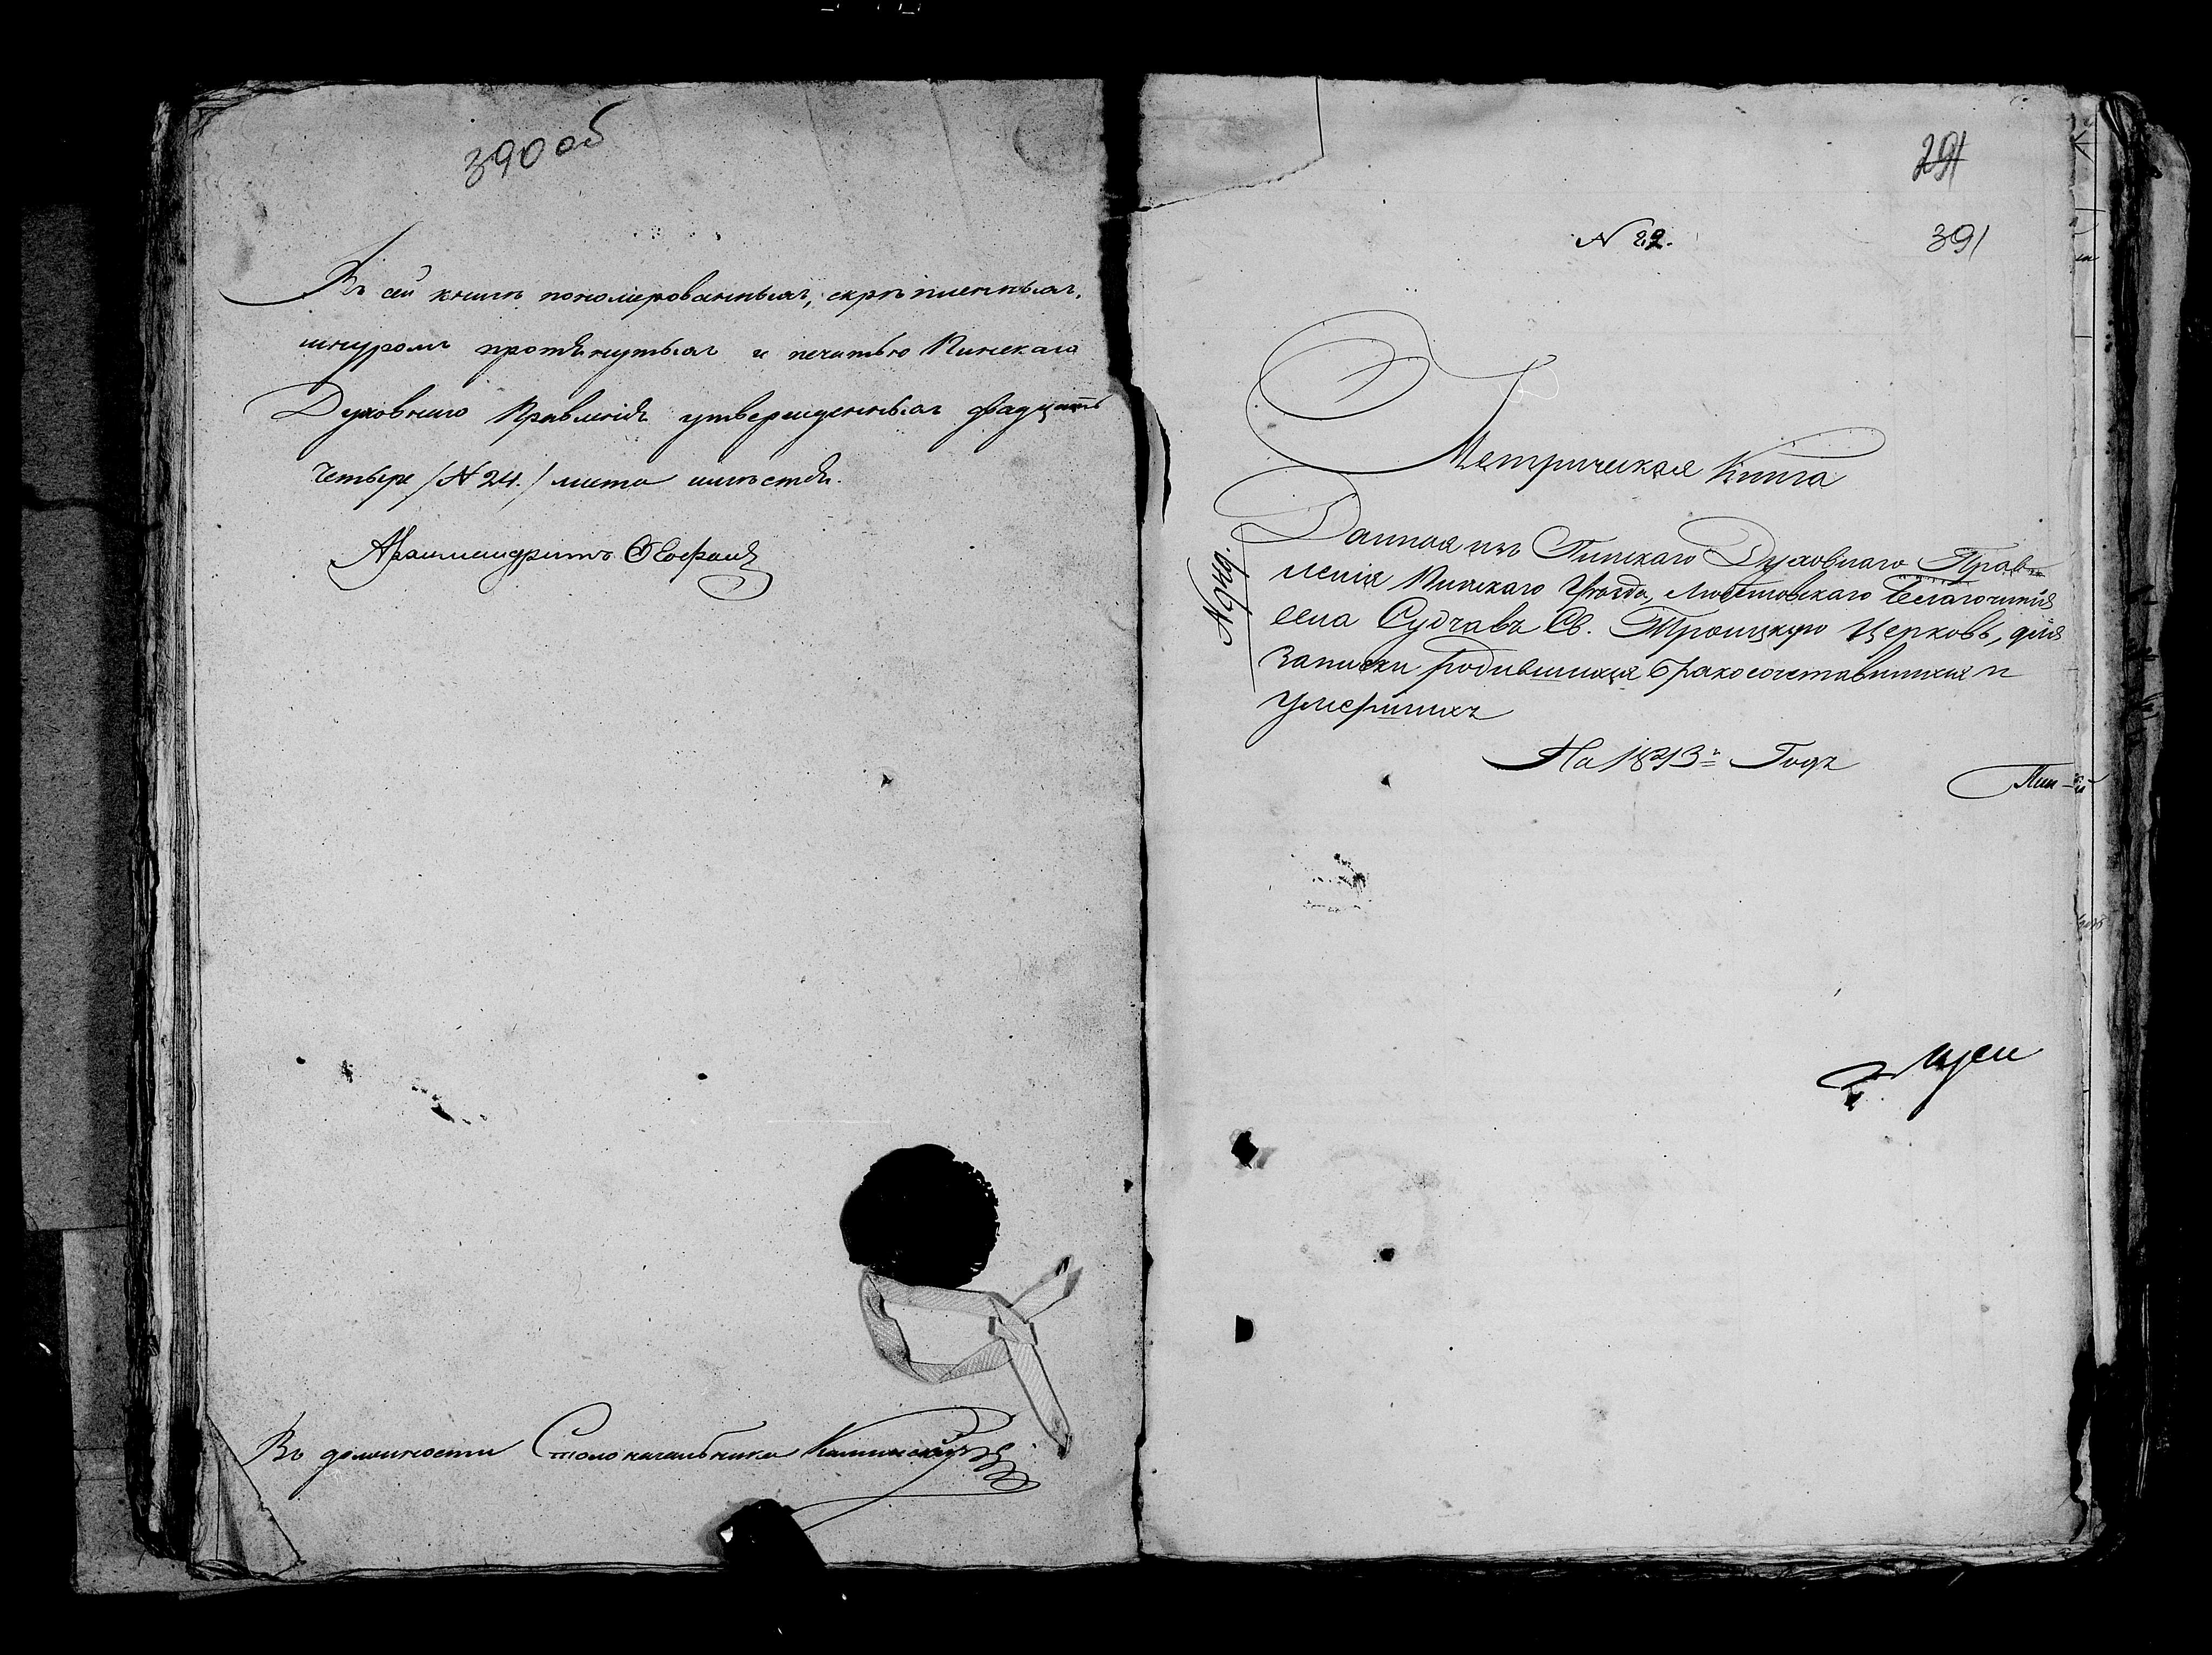 390 об
Въ сей книгѣ пономерованныхъ, скрѣпленныхъ,
шнуромъ протянутыхъ и печатью Пинскаго
Духовнаго Правленія утвержденныхъ двадцать
четыре /№ 24./ листа имѣется.
Архимандритъ
Въ должности Столоначальника
291
№ 22.
391
Метрическая Книга
Данная изъ Пинскаго Духовнаго Прав-
ленія Пинскаго Уѣзда, Благочинія
села Судчавъ Св. Троицкую Церковь, для
записки родившихся бракосочетавшихся и
умершихъ
На 1843й Годъ